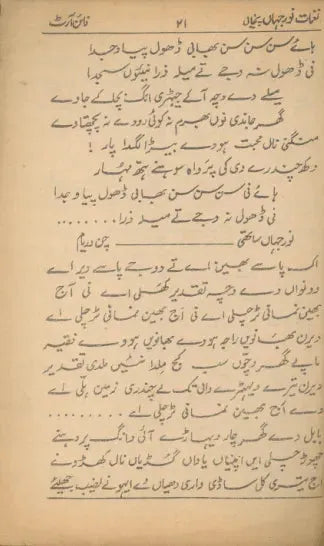 نغمات نورجہاں پنجابی ۲۱ فائن آرٹ
ہائے سن سن سن بھابی ڈھول پیا وجدا
نی ڈھول نہ وجے تے میلہ ذرا نیئوں سجدا
میلے دے وچہ آکے جیہڑی انگ بچلکے جاوے
گھر جاندی نوں بھرم نہ کوئی رووے نہ پچھتاوے
منگنی نال محبت ہووے بیڑا لگدا پار !
دی کی پرواہ سوہنے ہتھ مہار
ہائے نی سن سن سن بھابی ڈھول پیا وجدا
نی ڈھول نہ وجے تے میلہ ذرا ........
نورجہاں ساتھی ــــــــ چن وریام
اک پاسے بھین اے تے دوجے پاسے ویر اے
دونواں دے وچہ تقدیر کھلی اے نی آج
بھین نمانی ٹر چلی اے نی آج بھین نمانی ٹر چلی اے
ویرن بھانویں راجہ ہووے بھانویں ہووے فقیر
بابے گھر وچوں سب کج ملدا نئیں ملدی تقدیر
ویرن تیرے ویہڑے والی تک لے چندری زمین ہلی اے
وے آج بھین نمانی ٹر چلی اے ........
بابل دے گھر چار دیہاڑے آئی وانگ پروہنے
چھوڑ چلی ایں اپنیاں یاداں گڈیاں نال کھڈونے
آج تیری کل ساڈی واری دھیاں دے ایہو نے نصیب